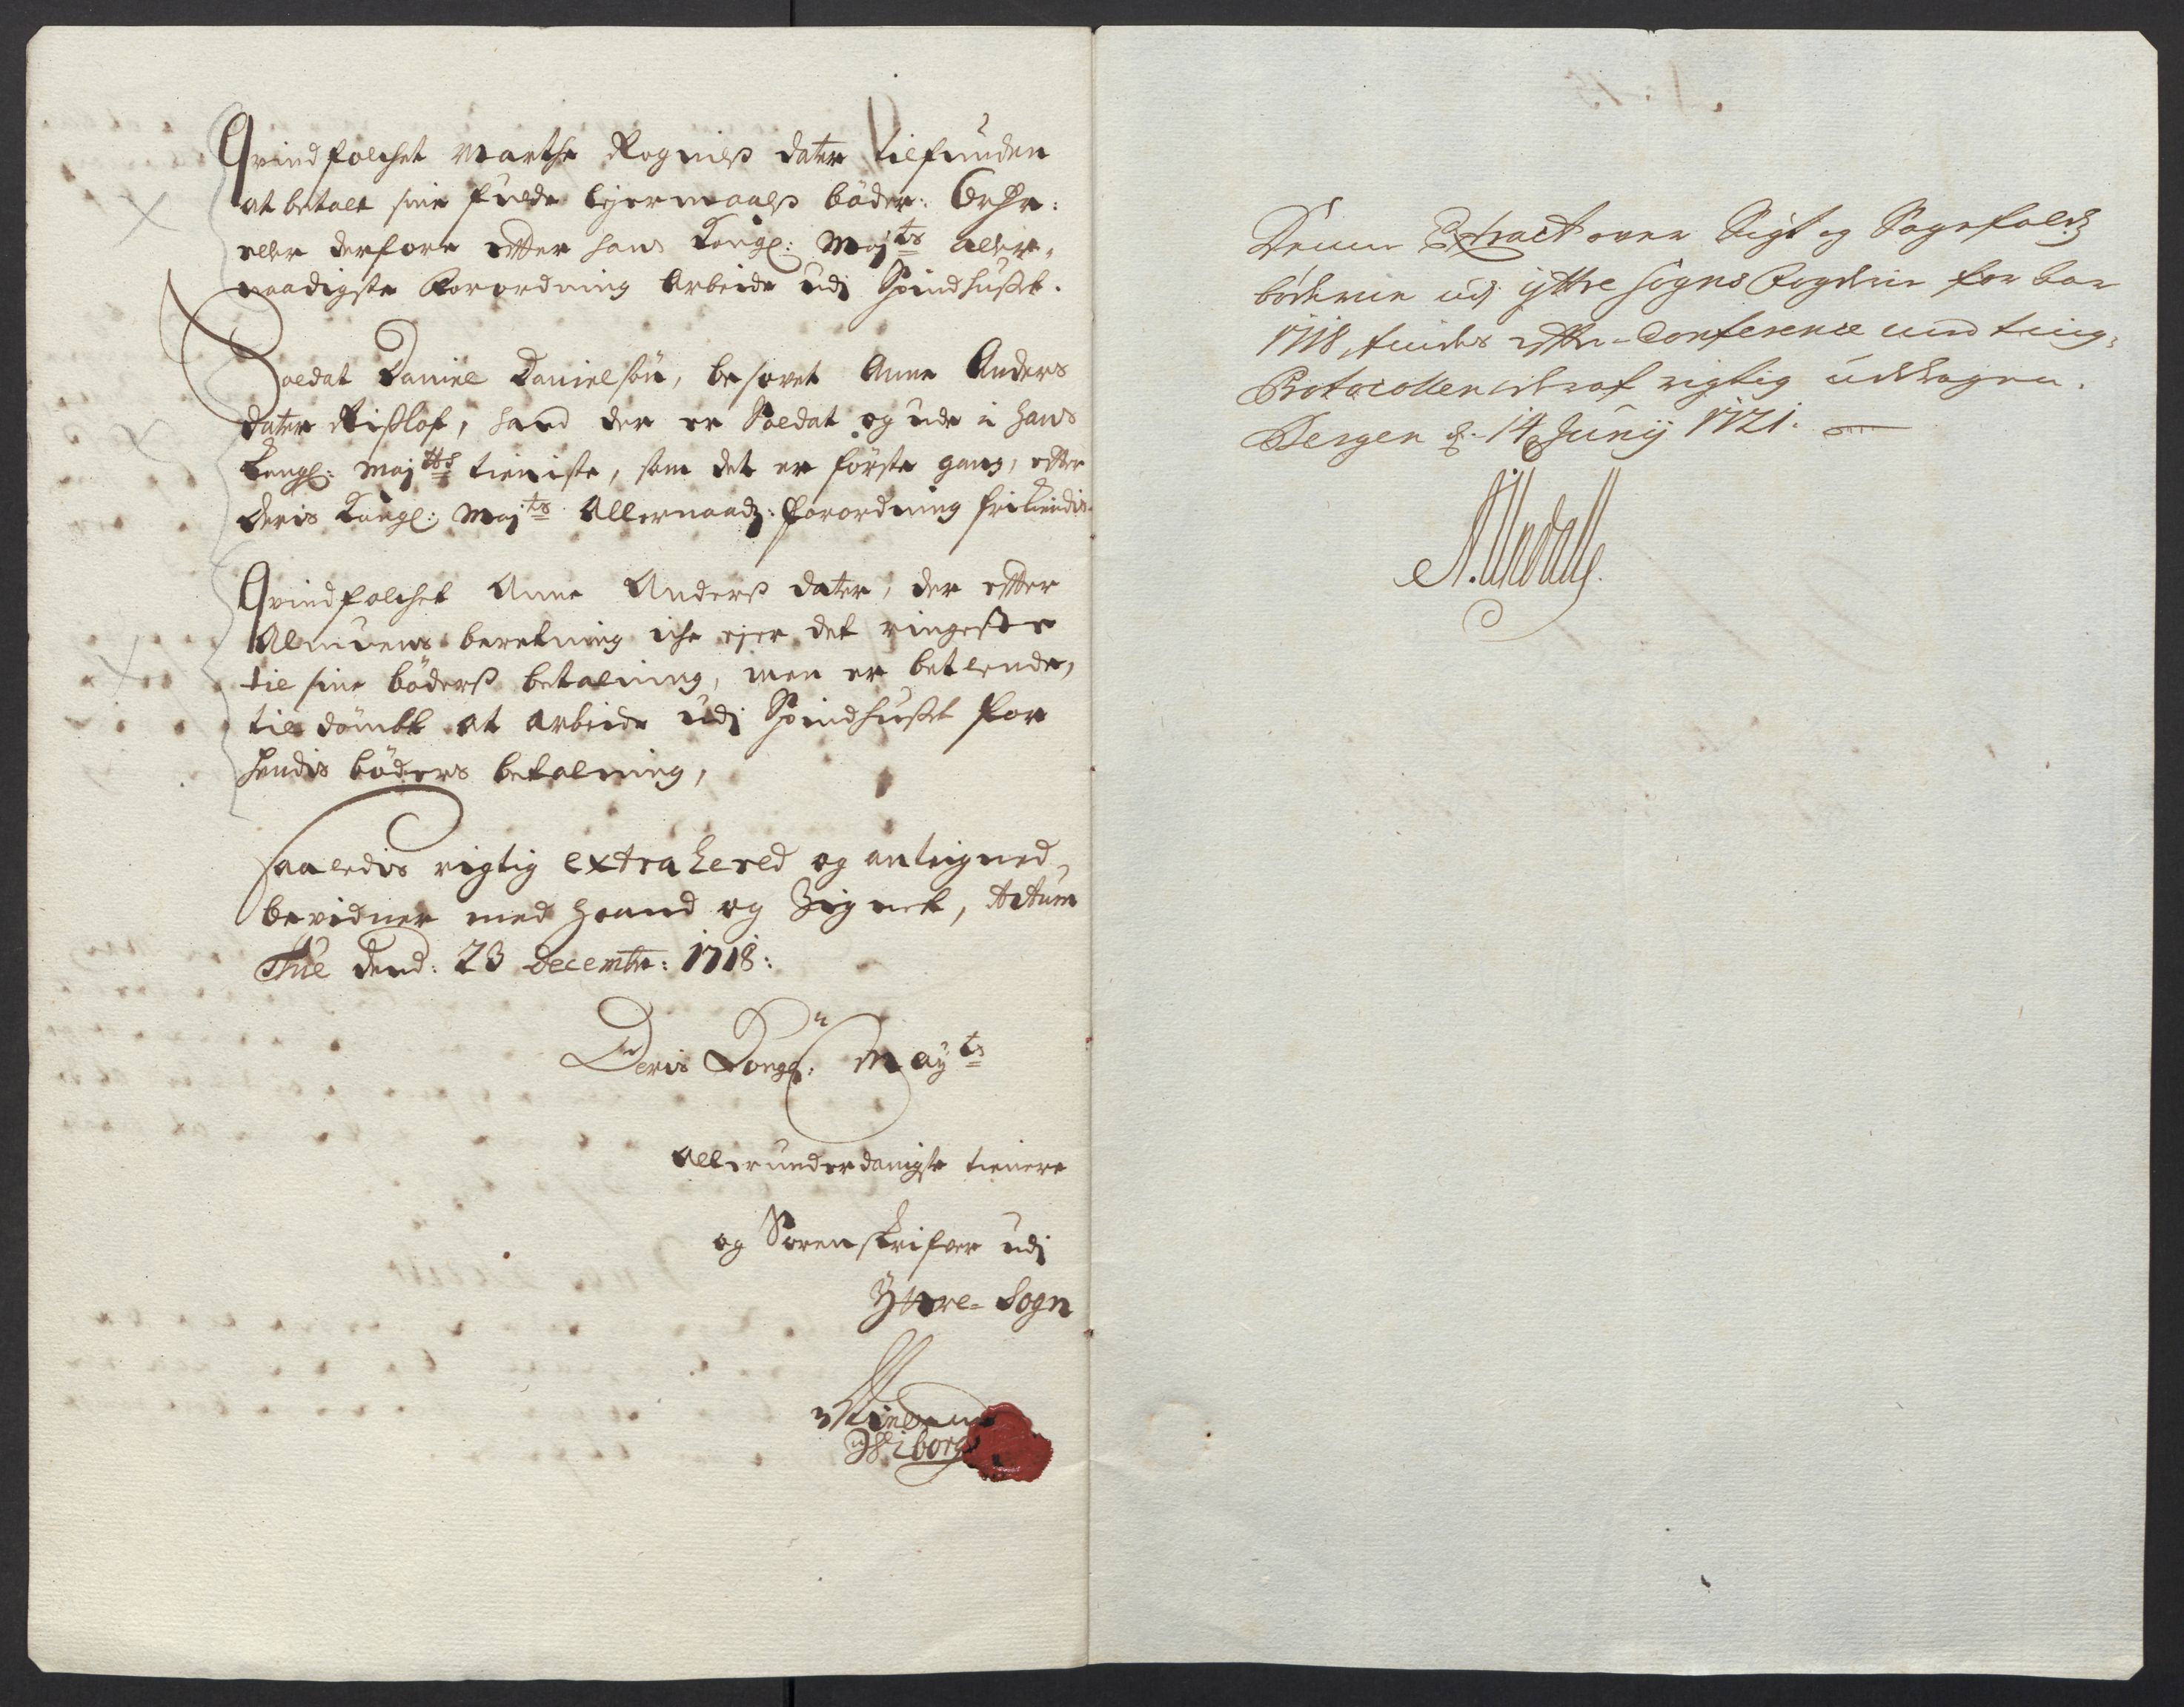 Qvindfolchet Marthe Rognilß dater tilfunden
at betale sine fulde lejermaalß böder:
eller derfore efter hans Kongl: Majts aller-
naadigste Forordning Arbeide udj Spindhußet.
Soldat Daniel Danielsön, besovet Anne Anders
dater Rißlof, hand der er Soldat og ude i hans
Kongl: Majtts tieniste, som det er förste gang, efter
Deris Kongl: Majts Allernaadz: Forordning frikiendis.
Qvindfolchet Anne Anderß dater, der efter
Almuens beretning iche ejer det ringeste
til sine böderß betalning, men er betlende,
til dömbt at arbeide udj Spindhußet for
hendis böders betalning,
Saaledis rigtig extrahered og anteigned,
bevidner med Haand og Zignet, Actum
Thue dend: 23 Decembr: 1718:
Deris Kongl: Mayts
Allerunderdanigste tienere
og Sorenskrifver udj
Yttre-Sogn
Wiborg
Denne Extract over Sigt og Sagefalds
böderne udj yttre Sogns Fogderie for Aar
1718, findes efter Conference med ting-
Protocollen deraf rigtig uddragen.
Bergen d. 14 Junij 1721.